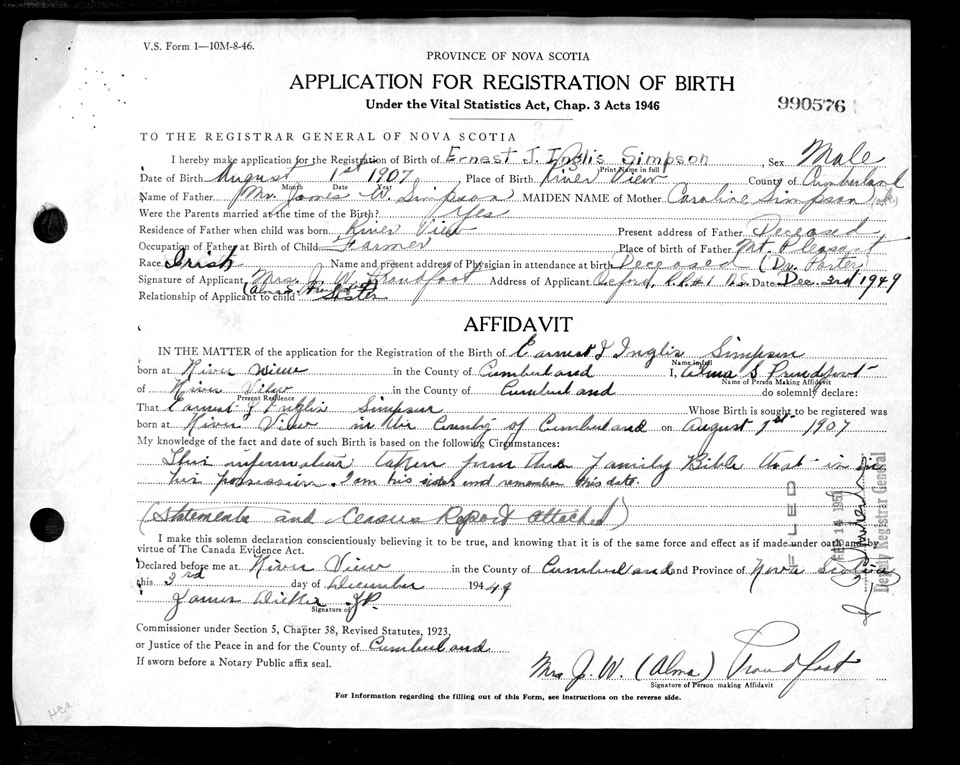 V.S. Form 1—10M-8-46.
PROVINCE OF NOVA SCOTIA
APPLICATION FOR REGISTRATION OF BIRTH
Under the Vital Statistics Act, Chap. 3 Acts 1946
990576
TO THE REGISTRAR GENERAL OF NOVA SCOTIA
I hereby make application for the Registration of Birth of Ernest J. Inglis Simpson Sex Male
Print Name in full
Date of Birth August 1st 1907 Place of Birth River View County of Cumberland
Month Date Year
Name of Father Mr. James W. Simpson MAIDEN NAME of Mother Caroline Simpson
Were the Parents married at the time of the Birth? Yes
Residence of Father when child was born River View Present address of Father Deceased
Occupation of Father at Birth of Child Farmer Place of birth of Father Mt. Pleasant
Race Irish Name and present address of Physician in attendance at birth Deceased (Dr. Porter)
Signature of Applicant Mrs. J. W. Proudfoot Address of Applicant Oxford, R.R.#1 N.S. Date Dec. 3rd 1949
(Alma Proudfoot)
Relationship of Applicant to child Sister
AFFIDAVIT
IN THE MATTER of the application for the Registration of the Birth of Earnest J Inglis Simpson
Name in full
born at River View in the County of Cumberland I, Alma S Proudfoot
Name of Person Making Affidavit
of River View in the County of Cumberland do solemnly declare:
Present Residence
That Earnest J Inglis Simpson Whose Birth is sought to be registered was
born at River View in the County of Cumberland on August 1st 1907
My knowledge of the fact and date of such Birth is based on the following Circumstances:
This information taken from the Family Bible that is in
his possession. I am his sister and remember this date.
(Statements and Census Report attached)
I make this solemn declaration conscientiously believing it to be true, and knowing that it is of the same force and effect as if made under oath and by
virtue of The Canada Evidence Act.
Declared before me at River View in the County of Cumberland and Province of Nova Scotia
this 3rd day of December 194 49
James Dickie J.P.
Signature of
Commissioner under Section 5, Chapter 38, Revised Statutes, 1923,
or Justice of the Peace in and for the County of Cumberland
If sworn before a Notary Public affix seal.
Mrs J. W. (Alma) Proudfoot
Signature of Person making Affidavit
For Information regarding the filling out of this Form, see instructions on the reverse side.
FILED
FEB 14 1951
Deputy Registrar General